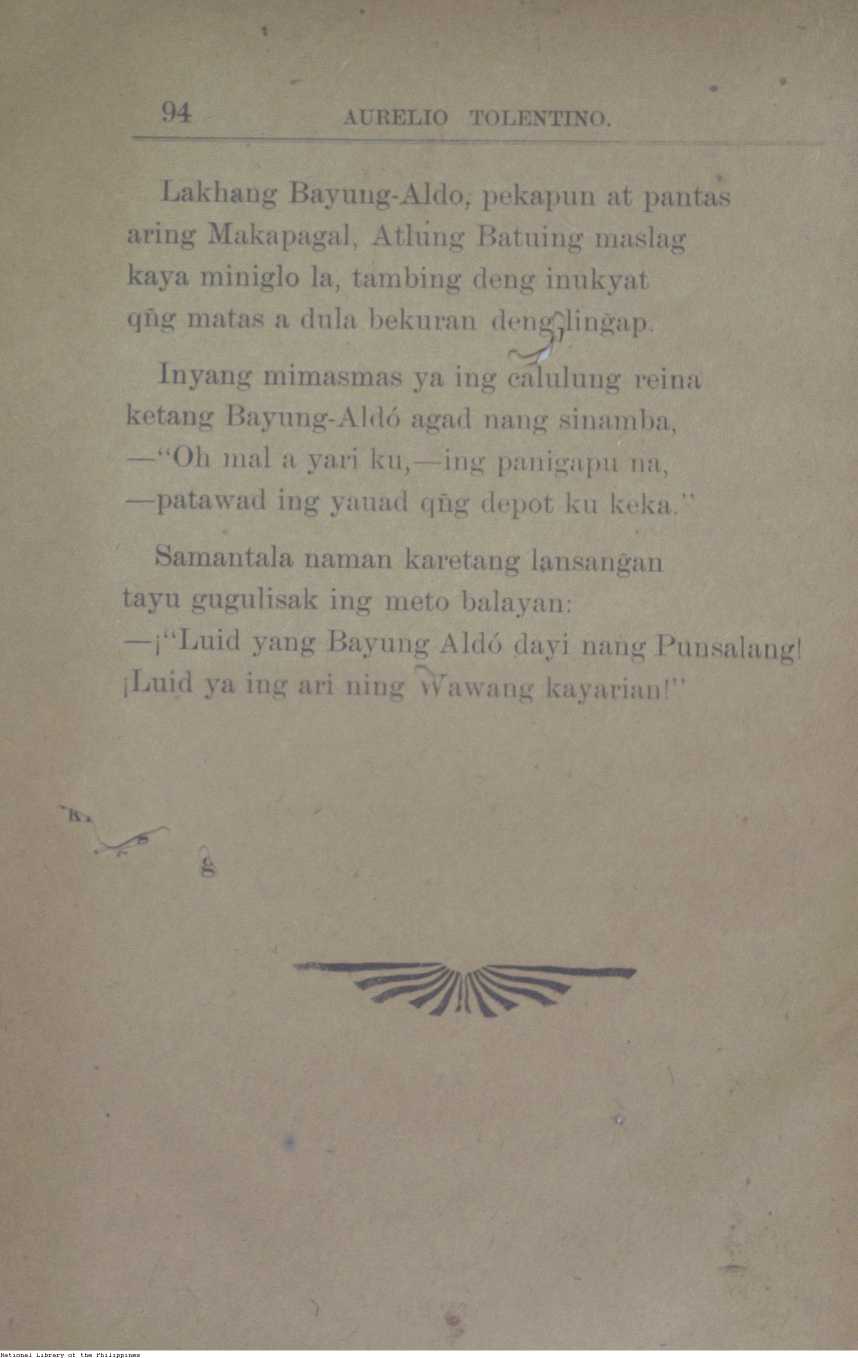 94 AURELIO TOLENTINO.
Lakhang Bayung-Aldo, pekapun at pantas
aring Makapagal, Atlung Batuing maslag
kaya miniglo la, tambing deng inukyat
qñg matas a dula bekuran deng lingap.
Inyang mimasmas ya ing calulung reina
ketang Bayung-Aldó agad nang sinamba,
—“Oh mal a yari ku,—ing panigapu na,
—patawad ing yauad qñg depot ku keka.”
Samantala naman karetang lansangan
tayu gugulisak ing meto balayan:
—¡“Luid yang Bayung Aldó dayi nang Punsalang!
¡Luid ya ing ari ning Wawang kayarian!”
g
National Library of the Philippines